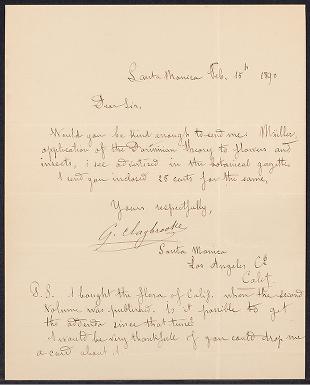 Santa Monica Feb. 15th 1890
Dear Sir,
Would you be kind enough to send me: Müller,
application of the Darwinian Theory to flowers and
insects, i see advertised in the botanical gazette
I send you inclosed 25 cents for the same,
Yours respectfully,
G. Claybrooke
Santa Monica
Los Angeles Co
Calif
P.S. I bought the flora of Calif. when the second
volume was published. Is it possible to get
the addenda since that time?
I would be very thankfull if you could drop me
a card about it